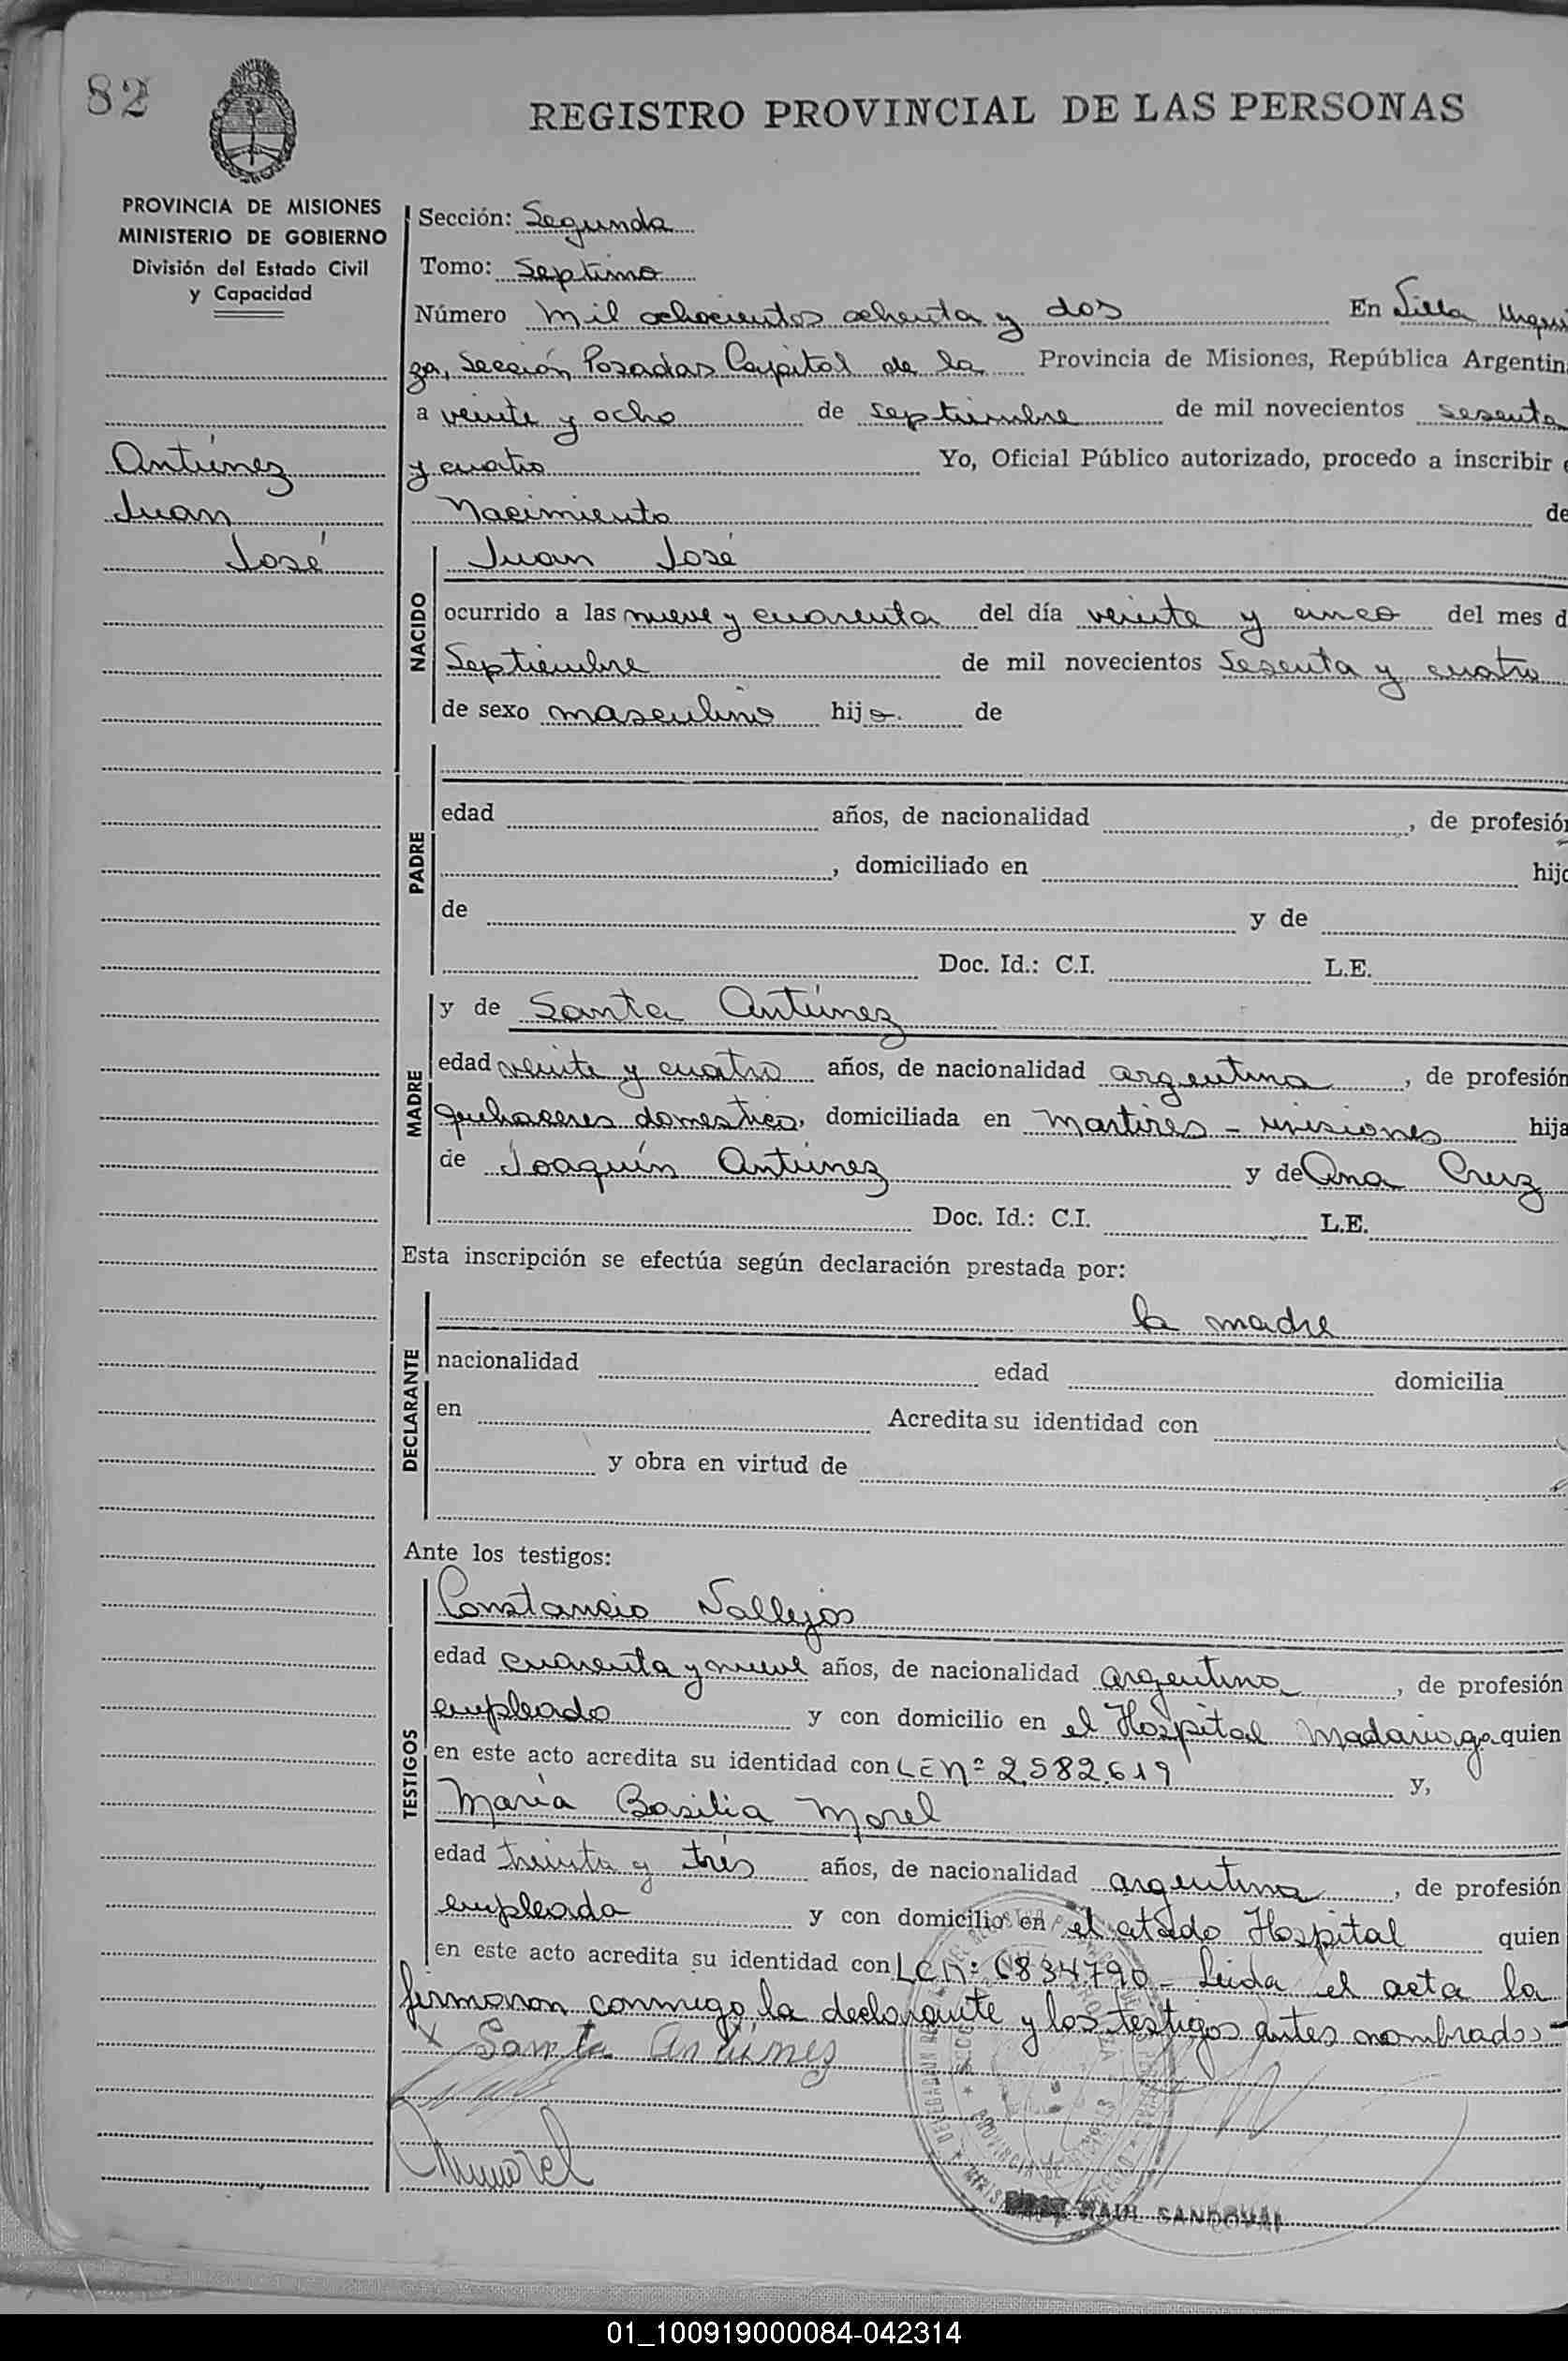 82
REGISTRO PROVINCIAL DE LAS PERSONAS
PROVINCIA DE MISIONES
MINISTERIO DE GOBIERNO
División del Estado Civil
y Capacidad
Antúnez
Juan
José
Sección: Segunda
Tomo: Septimo
Número mil ochocientos ochenta y dos En Villa Urqui
za, Sección Posadas Capital de la Provincia de Misiones, República Argentin
a veinte y ocho de septiembre de mil novecientos sesenta
y cuatro Yo, Oficial Público autorizado, procedo a inscribir e
Nacimiento de
NACIDO
Juan José
ocurrido a las nueve y cuarenta del día veinte y cinco del mes d
Septiembre de mil novecientos sesenta y cuatro
de sexo masculino hijo. de
PADRE
edad años, de nacionalidad , de profesión
, domiciliado en hijo
de y de
Doc. Id.: C.I. L.E.
MADRE
y de Santa Antúnez
edad veinte y cuatro años, de nacionalidad argentina, de profesión
quehaceres domestico, domiciliada en Martires - misiones hija
de Joaquín Antúnez y de Ana Cruz
Doc. Id.: C.I. L.E.
Esta inscripción se efectúa según declaración prestada por:
DECLARANTE
la madre
nacionalidad edad domicilia
en Acredita su identidad con
y obra en virtud de
Ante los testigos:
TESTIGOS
Constancio Vallejos
edad cuarenta y nueve años, de nacionalidad argentino, de profesión
empleado y con domicilio en el Hospital Madariaga quien
en este acto acredita su identidad con LE nº 2.582.619 y,
María Basilia Morel
edad treinta y trés años, de nacionalidad argentina, de profesión
empleada y con domicilio en el citado Hospital quien
en este acto acredita su identidad con LC nº 6834.790 - Leida el acta la
firmaron conmigo la declarante y los testigos antes nombrados -
x Santa Antúnez
Mmorel
RAUL SANDOVAL
01_100919000084-042314